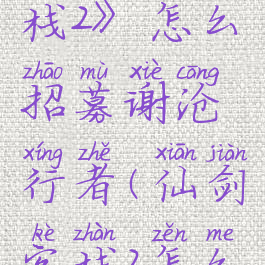 栈2》 怎么
zhāo mù xiè cāng
招募谢沧
xíng zhě xiān jiàn
行者(仙剑
kè zhàn zěn me
客栈2怎么